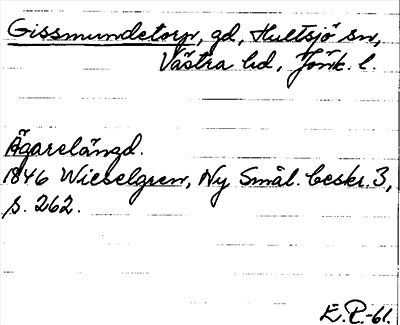 Gissmundetorp, gd, Hultsjö sn,
Västra hd, Jönk. l.
Ägarelängd.
1846 Wieselgren, Ny Smål. beskr. 3,
s. 262.
E.P.-61.